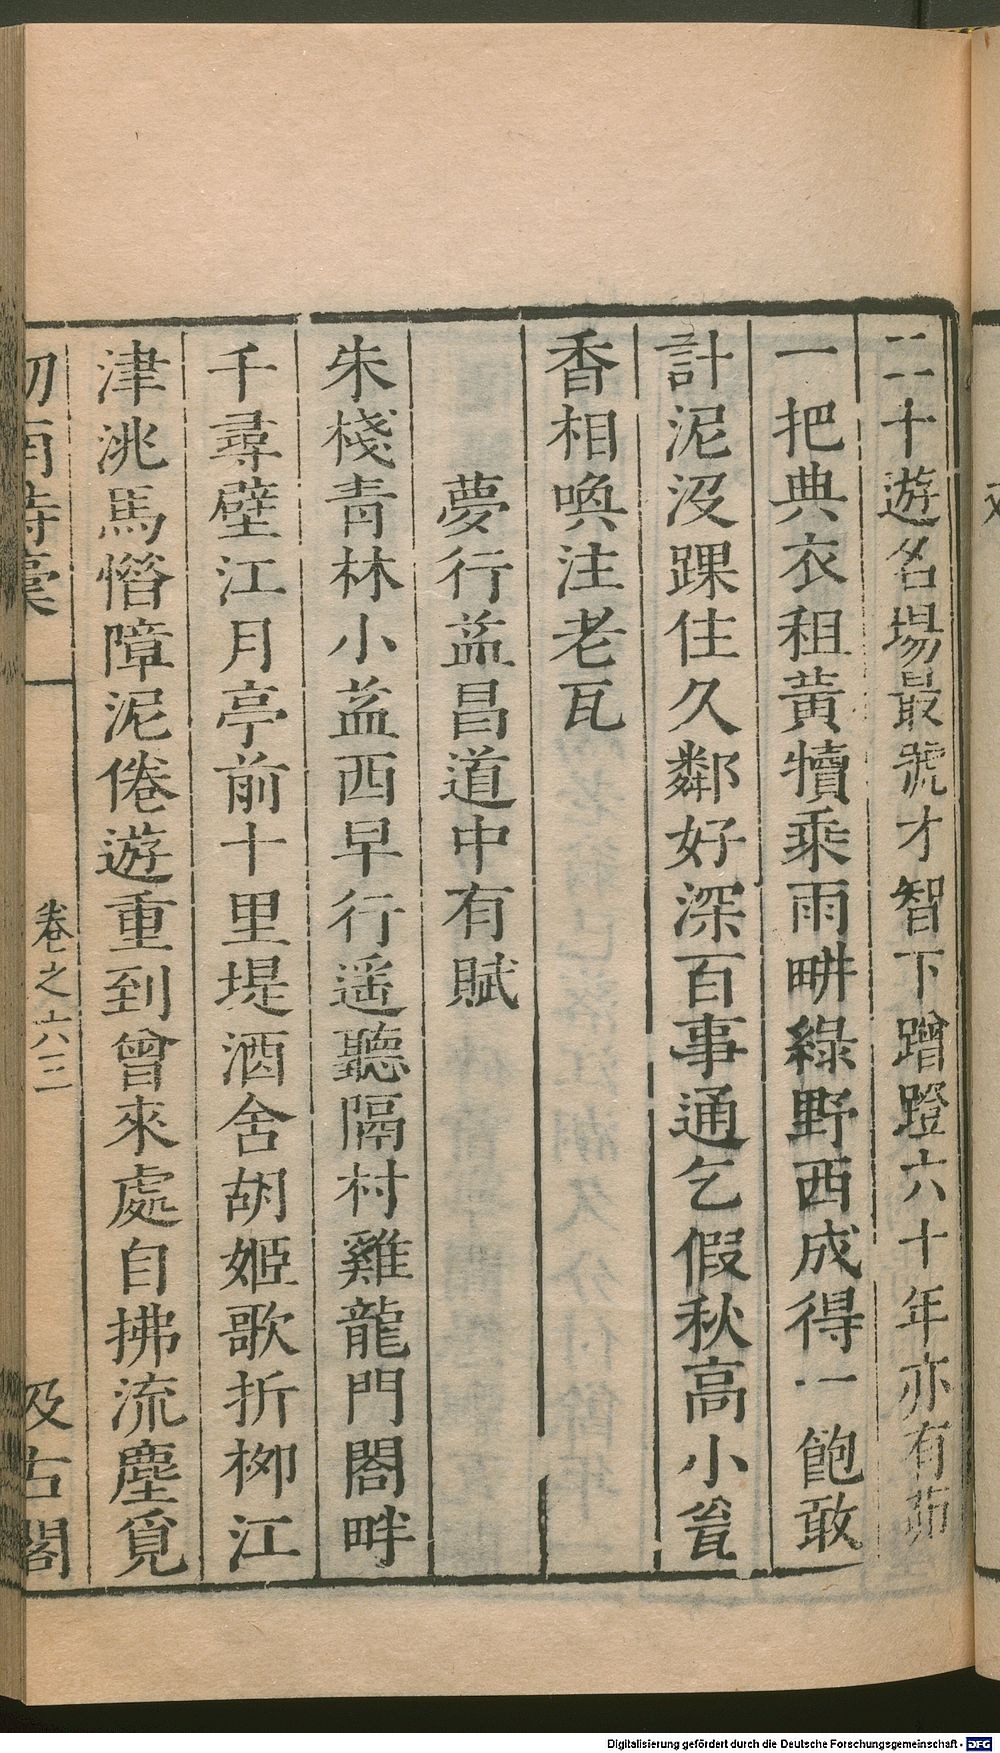 二十遊名場最號才智下蹭蹬六十年亦有茆
一把典衣租黃犢乘雨畊綠野西成得一飽敢
計泥没踝住久鄰好深百事通乞假秋高小瓮
香相喚注老瓦
夢行益昌道中有賦
朱棧青林小益西早行遥聽隔村雞龍門閣畔
千尋壁江月亭前十里堤酒舍胡姬歌折柳江
津洮馬憯障泥倦遊重到曾來處自拂流塵覓
劍南詩稾
卷之六三
汲古閣
Digitalisierung gefördert durch die Deutsche Forschungsgemeinschaft - DFG